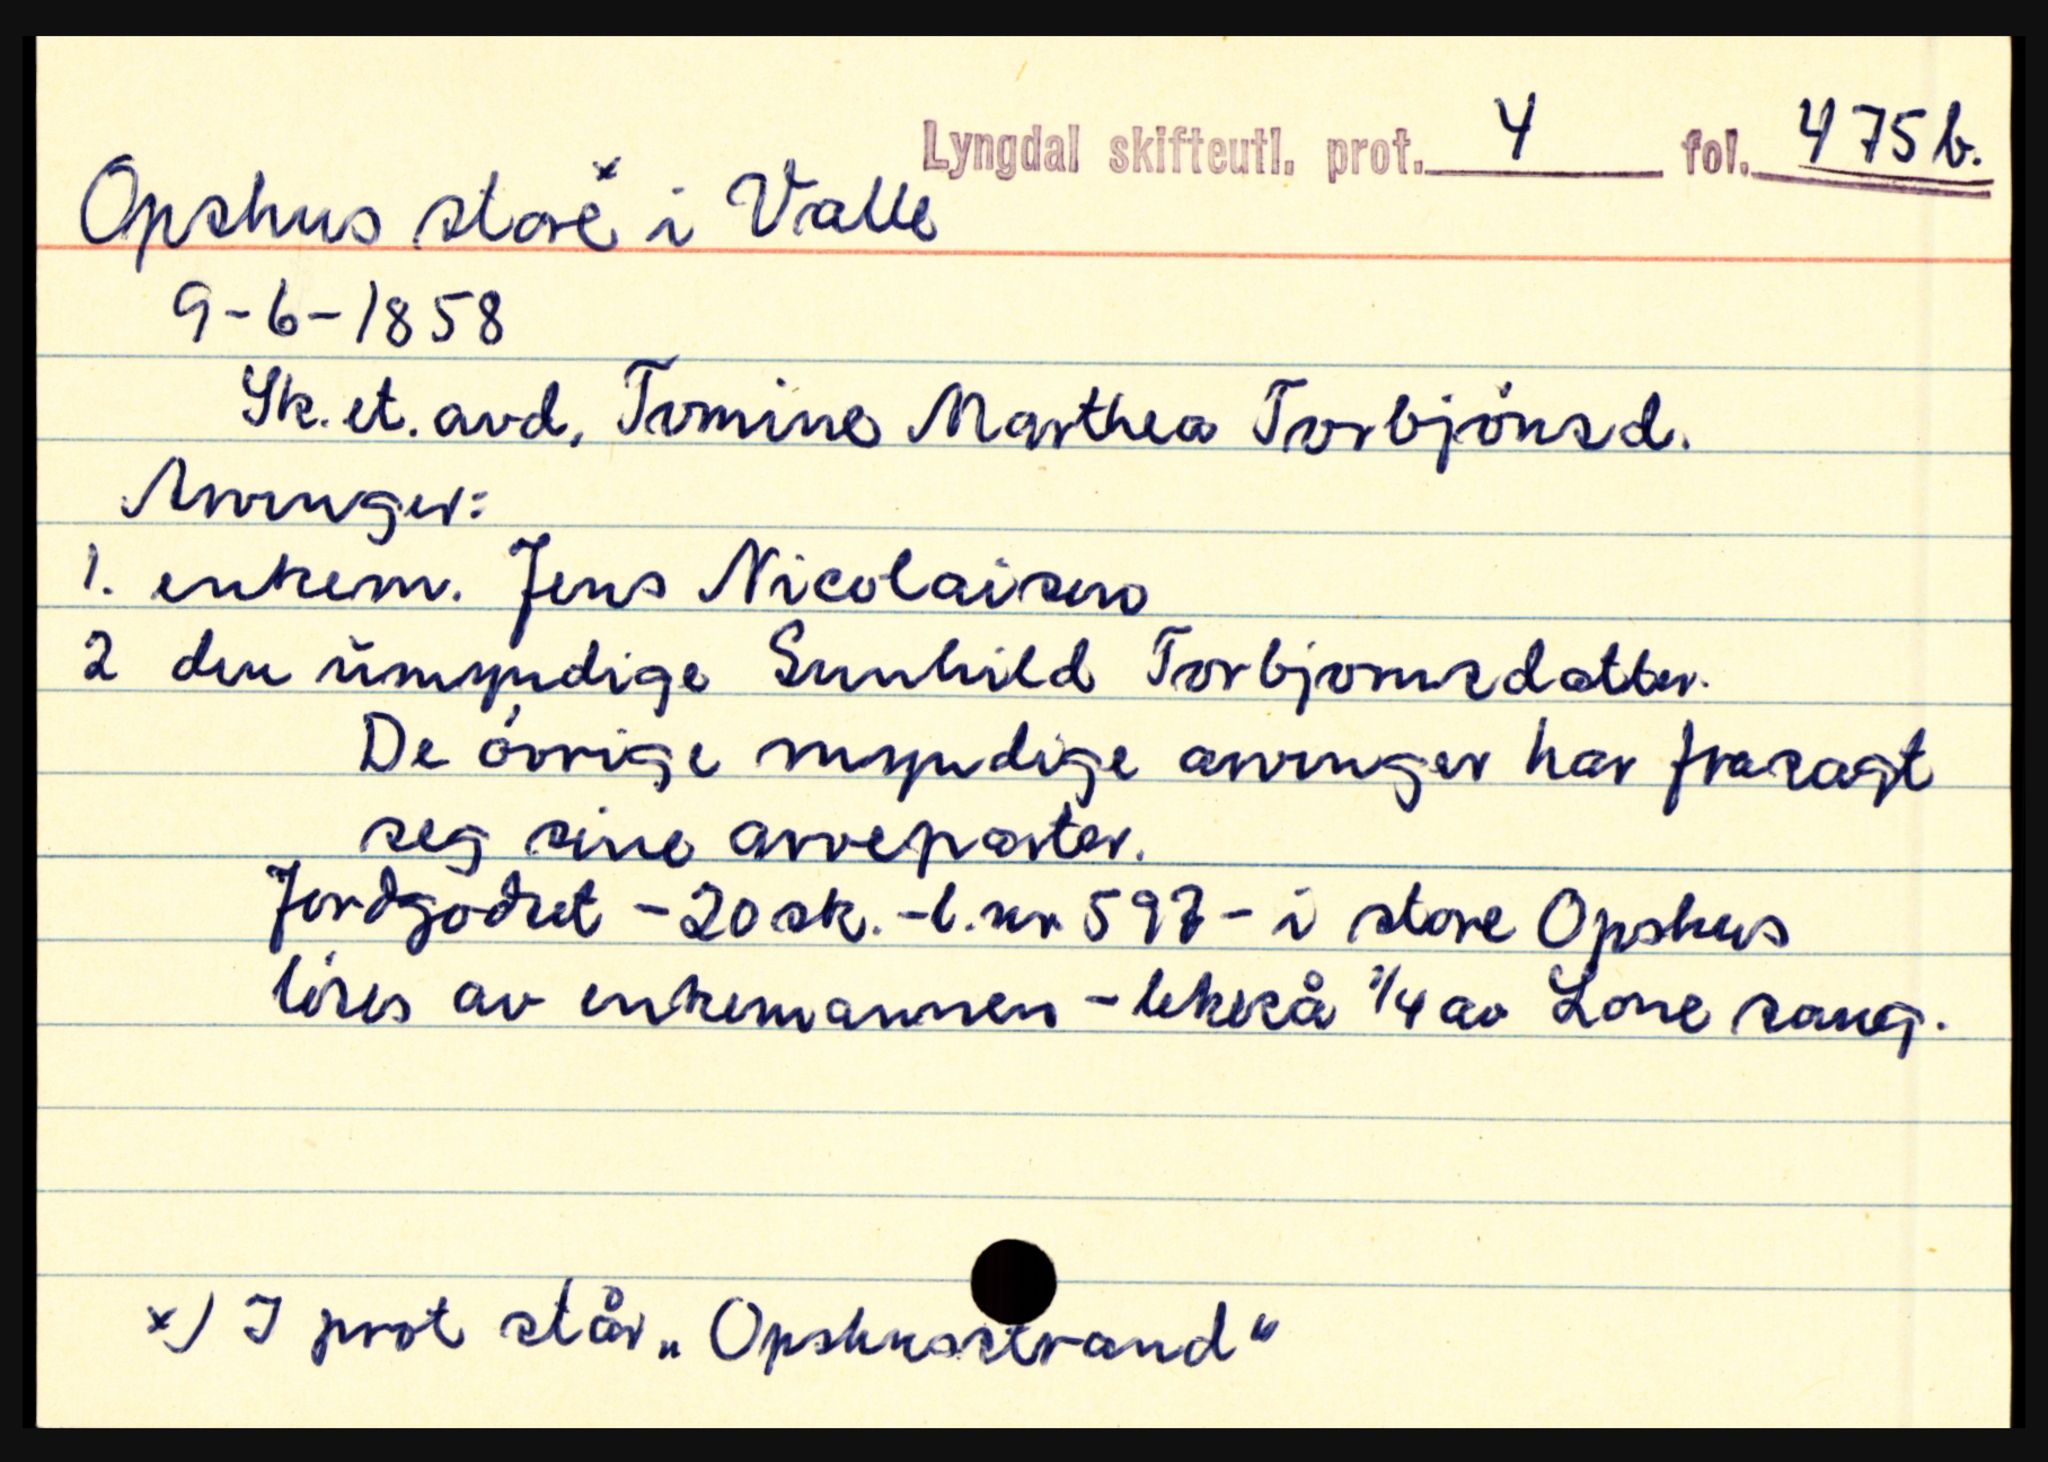 Lyngdal skifteutl. prot. 4 fol. 475b.
Opshus store x i Valle
9-6-1858
Sk. et. avd. Tomine Marthea Torbjönsd.
Arvinger:
1. enkem. Jens Nicolaisen
2 den umyndige Gunhild Torbjornsdatter.
De övrige myndige arvinger har frasagt
seg sine arveparter.
Jordgodset - 20 sk. - l. nr 597 - i store Opshus
löses av enkemannen - likeså 1/4 av Lone saug.
x) I prot står „Opshusstrand"